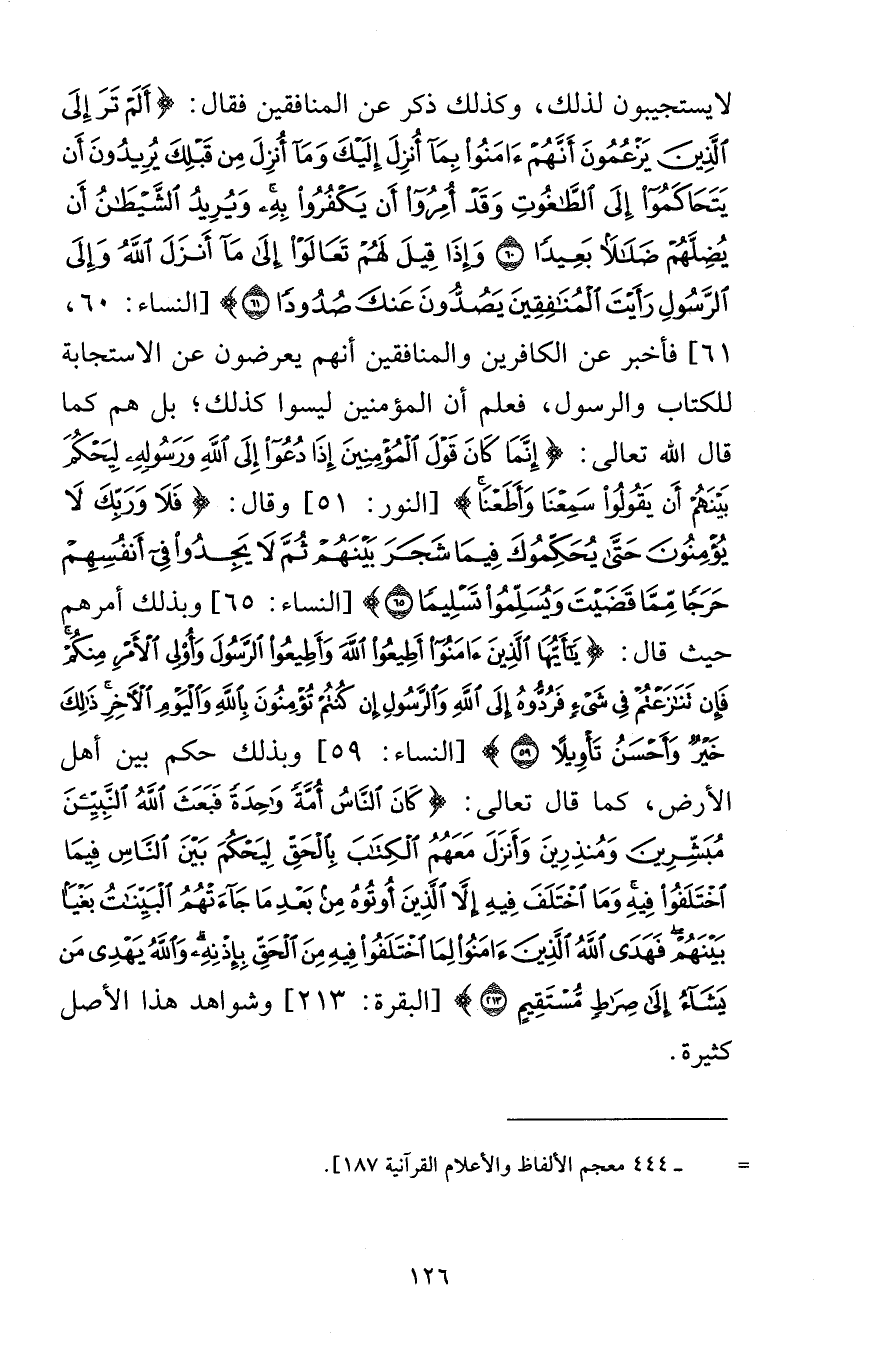 لايستجيبون لذلك، وكذلك ذكر عن المنافقين فقال: ﴿ أَلَمْ تَرَ إِلَى
ٱلَّذِينَ يَزْعُمُونَ أَنَّهُمْ ءَامَنُوا۟ بِمَآ أُنزِلَ إِلَيْكَ وَمَآ أُنزِلَ مِن قَبْلِكَ يُرِيدُونَ أَن
يَتَحَاكَمُوٓا۟ إِلَى ٱلطَّٰغُوتِ وَقَدْ أُمِرُوٓا۟ أَن يَكْفُرُوا۟ بِهِۦۚ وَيُرِيدُ ٱلشَّيْطَٰنُ أَن
يُضِلَّهُمْ ضَلَٰلًۢا بَعِيدًا ٦٠ وَإِذَا قِيلَ لَهُمْ تَعَالَوْا۟ إِلَىٰ مَآ أَنزَلَ ٱللَّهُ وَإِلَى
ٱلرَّسُولِ رَأَيْتَ ٱلْمُنَٰفِقِينَ يَصُدُّونَ عَنكَ صُدُودًا ٦١ ﴾ [النساء: ٦٠،
٦١] فأخبر عن الكافرين والمنافقين أنهم يعرضون عن الاستجابة
للكتاب والرسول، فعلم أن المؤمنين ليسوا كذلك؛ بل هم كما
قال الله تعالى: ﴿ إِنَّمَا كَانَ قَوْلَ ٱلْمُؤْمِنِينَ إِذَا دُعُوٓا۟ إِلَى ٱللَّهِ وَرَسُولِهِۦ لِيَحْكُمَ
بَيْنَهُمْ أَن يَقُولُوا۟ سَمِعْنَا وَأَطَعْنَاۚ ﴾ [النور: ٥١] وقال: ﴿ فَلَا وَرَبِّكَ لَا
يُؤْمِنُونَ حَتَّىٰ يُحَكِّمُوكَ فِيمَا شَجَرَ بَيْنَهُمْ ثُمَّ لَا يَجِدُوا۟ فِىٓ أَنفُسِهِمْ
حَرَجًا مِّمَّا قَضَيْتَ وَيُسَلِّمُوا۟ تَسْلِيمًا ٦٥ ﴾ [النساء: ٦٥] وبذلك أمرهم
حيث قال: ﴿ يَٰٓأَيُّهَا ٱلَّذِينَ ءَامَنُوٓا۟ أَطِيعُوا۟ ٱللَّهَ وَأَطِيعُوا۟ ٱلرَّسُولَ وَأُو۟لِى ٱلْأَمْرِ مِنكُمْۖ
فَإِن تَنَٰزَعْتُمْ فِى شَىْءٍ فَرُدُّوهُ إِلَى ٱللَّهِ وَٱلرَّسُولِ إِن كُنتُمْ تُؤْمِنُونَ بِٱللَّهِ وَٱلْيَوْمِ ٱلْءَاخِرِۚ ذَٰلِكَ
خَيْرٌ وَأَحْسَنُ تَأْوِيلًا ٥٩ ﴾ [النساء: ٥٩] وبذلك حكم بين أهل
الأرض، كما قال تعالى: ﴿ كَانَ ٱلنَّاسُ أُمَّةً وَٰحِدَةً فَبَعَثَ ٱللَّهُ ٱلنَّبِيِّۦنَ
مُبَشِّرِينَ وَمُنذِرِينَ وَأَنزَلَ مَعَهُمُ ٱلْكِتَٰبَ بِٱلْحَقِّ لِيَحْكُمَ بَيْنَ ٱلنَّاسِ فِيمَا
ٱخْتَلَفُوا۟ فِيهِۚ وَمَا ٱخْتَلَفَ فِيهِ إِلَّا ٱلَّذِينَ أُوتُوهُ مِنۢ بَعْدِ مَا جَآءَتْهُمُ ٱلْبَيِّنَٰتُ بَغْيًۢا
بَيْنَهُمْۖ فَهَدَى ٱللَّهُ ٱلَّذِينَ ءَامَنُوا۟ لِمَا ٱخْتَلَفُوا۟ فِيهِ مِنَ ٱلْحَقِّ بِإِذْنِهِۦۗ وَٱللَّهُ يَهْدِى مَن
يَشَآءُ إِلَىٰ صِرَٰطٍ مُّسْتَقِيمٍ ٢١٣ ﴾ [البقرة: ٢١٣] وشواهد هذا الأصل
كثيرة.
= ـ ٤٤٤ معجم الألفاظ والأعلام القرآنية ١٨٧].
١٢٦